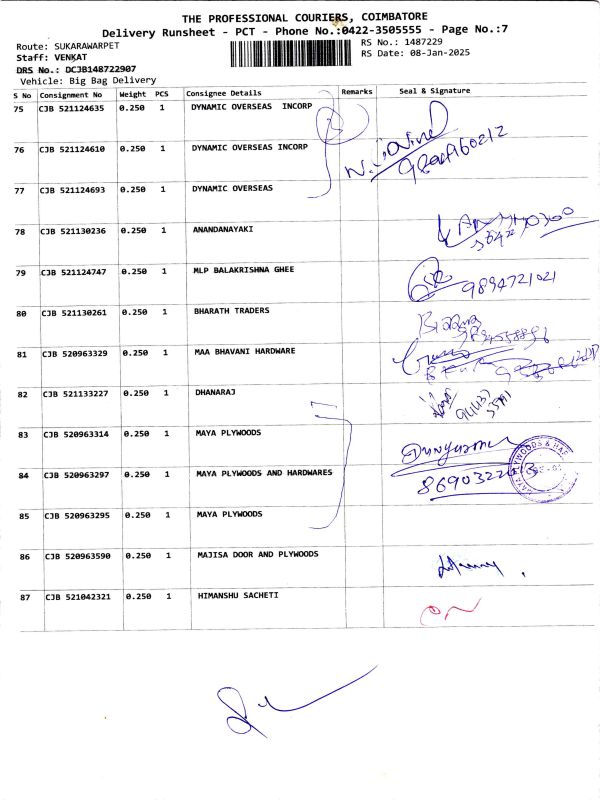 THE PROFESSIONAL COURIERS, COIMBATORE
Delivery Runsheet - PCT - Phone No.:0422-3505555 - Page No.:7
Route: SUKARAWARPET
RS No.: 1487229
Staff: VENKAT
RS Date: 08-Jan-2025
DRS No.: DCJB148722907
Vehicle: Big Bag Delivery
S No Consignment No Weight PCS Consignee Details Remarks Seal & Signature
75 CJB 521124635 0.250 1 DYNAMIC OVERSEAS INCORP
76 CJB 521124610 0.250 1 DYNAMIC OVERSEAS INCORP
77 CJB 521124693 0.250 1 DYNAMIC OVERSEAS
78 CJB 521130236 0.250 1 ANANDANAYAKI
79 CJB 521124747 0.250 1 MLP BALAKRISHNA GHEE 9894721021
80 CJB 521130261 0.250 1 BHARATH TRADERS
81 CJB 520963329 0.250 1 MAA BHAVANI HARDWARE
82 CJB 521133227 0.250 1 DHANARAJ
83 CJB 520963314 0.250 1 MAYA PLYWOODS
84 CJB 520963297 0.250 1 MAYA PLYWOODS AND HARDWARES
85 CJB 520963295 0.250 1 MAYA PLYWOODS
86 CJB 520963590 0.250 1 MAJISA DOOR AND PLYWOODS
87 CJB 521042321 0.250 1 HIMANSHU SACHETI